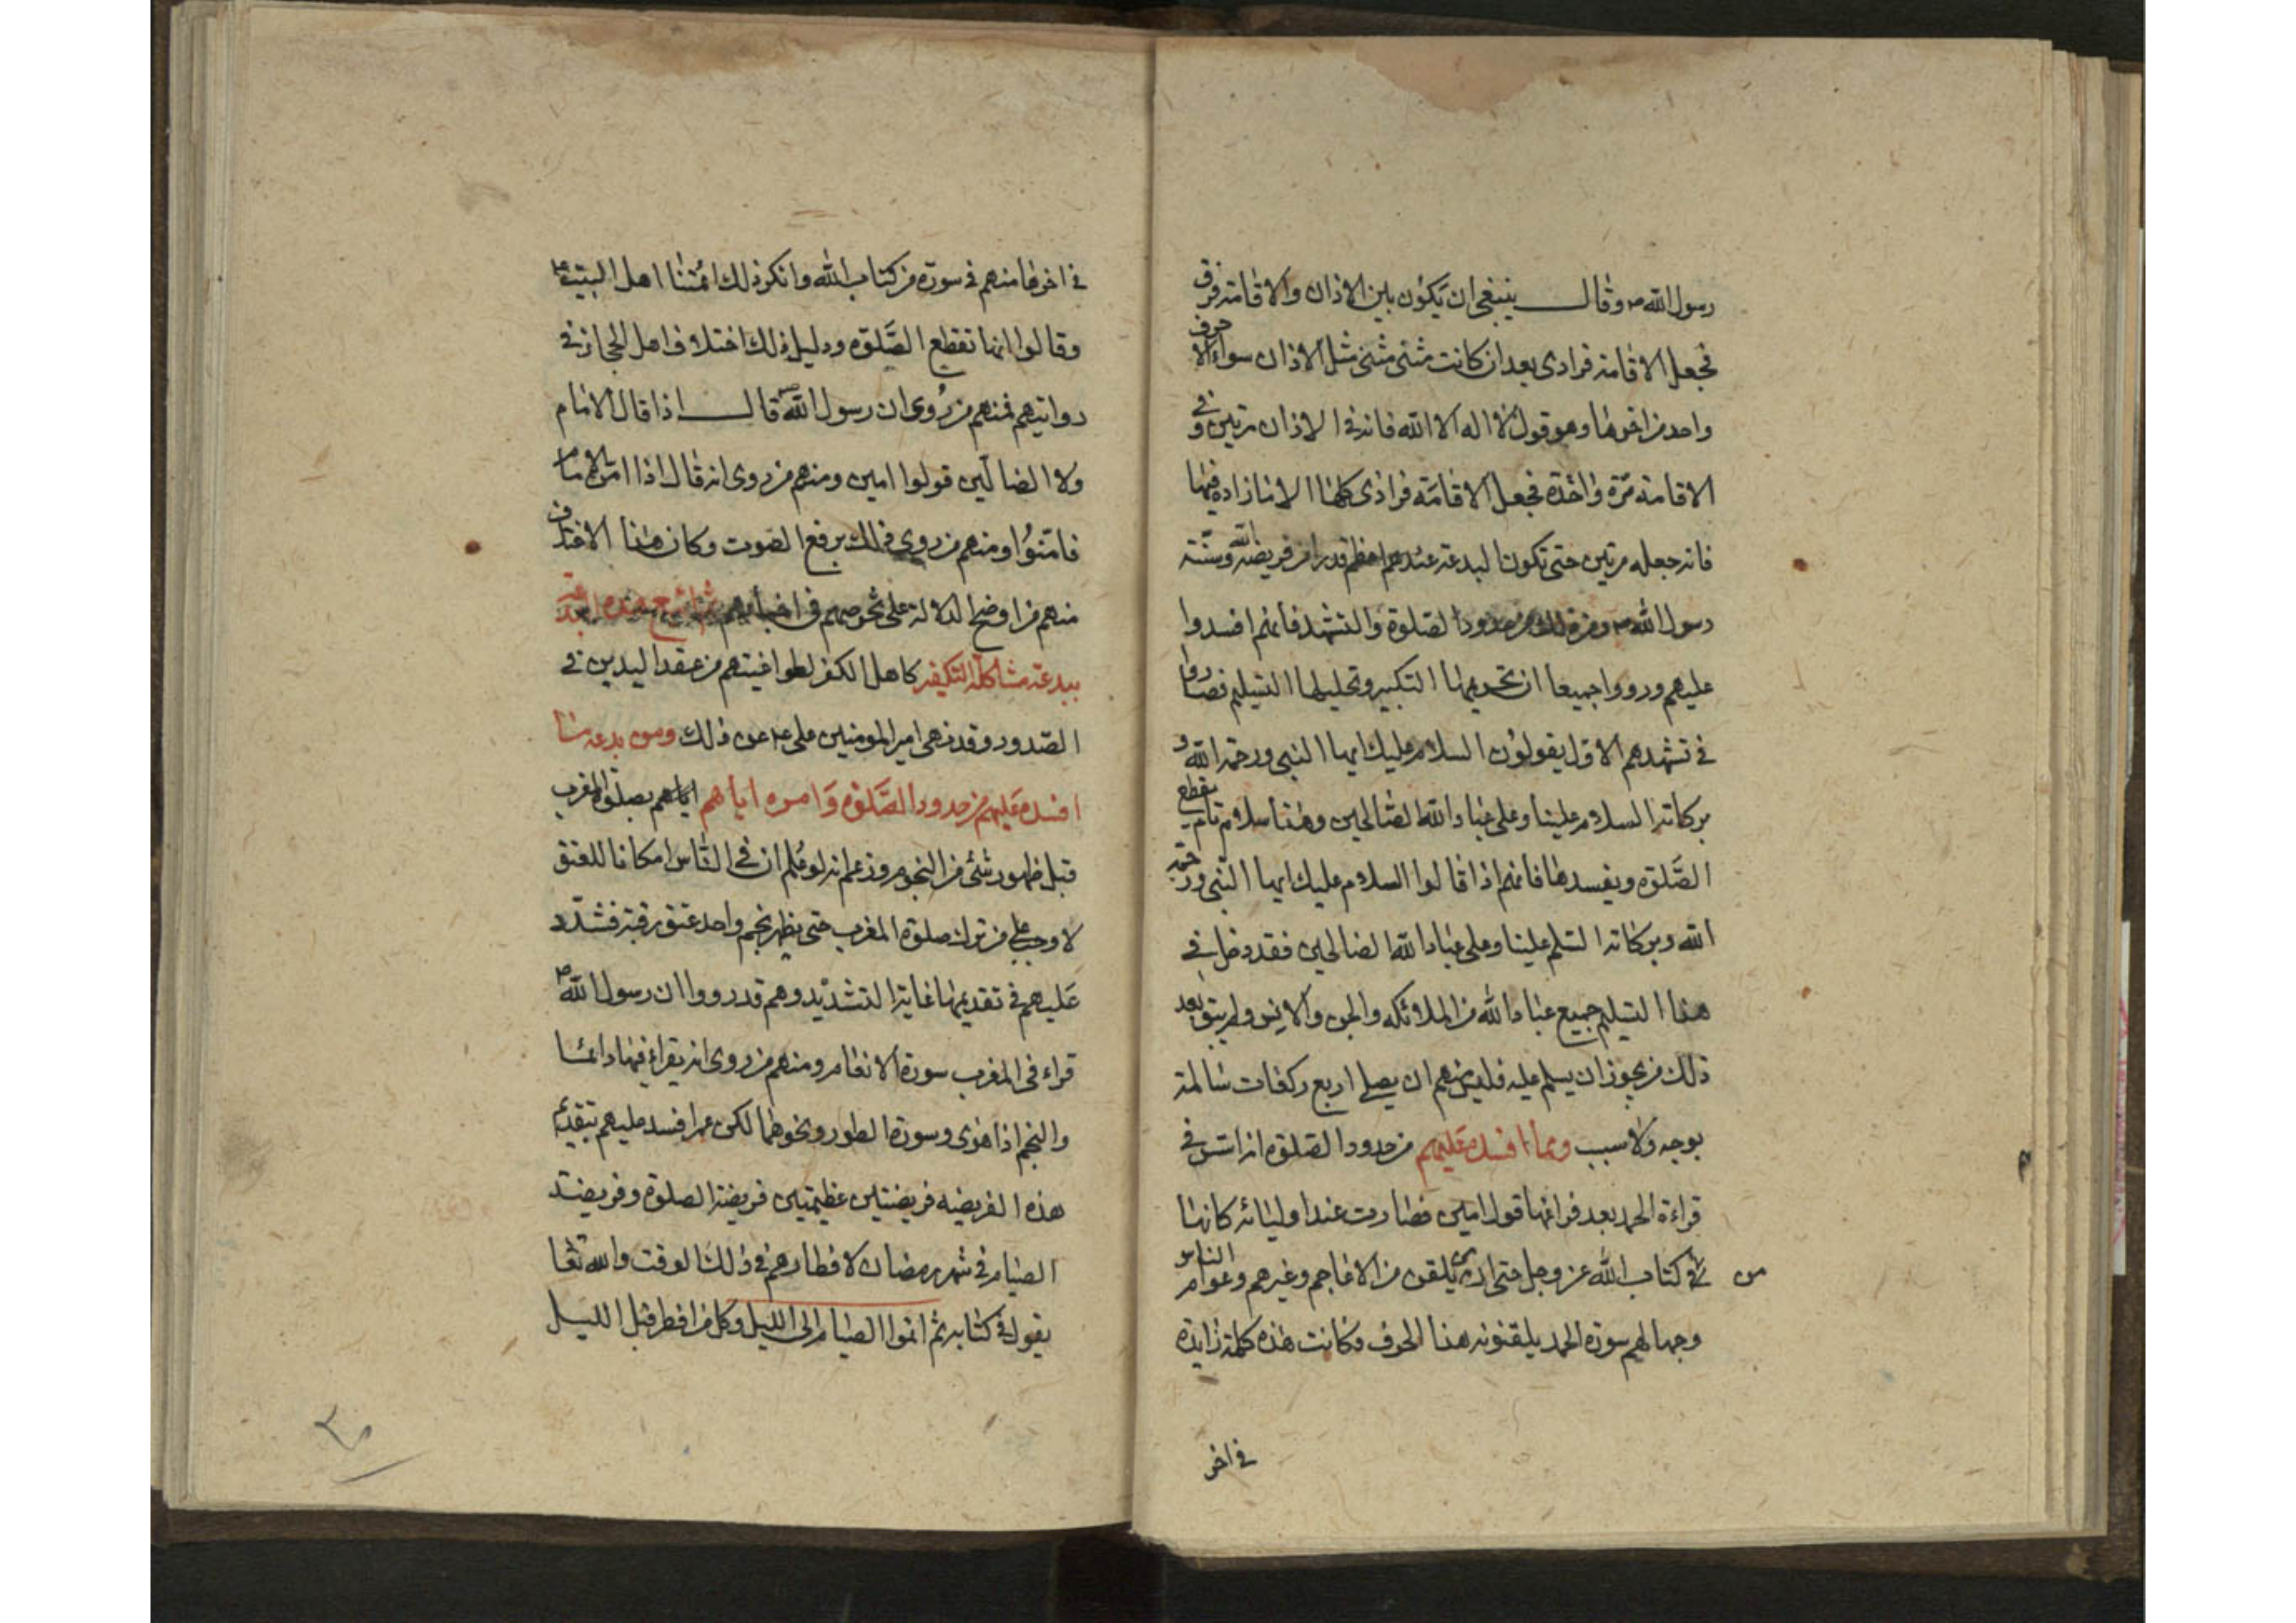 رسول الله ص وقال ينبغي ان يكون بين الاذان والاقامة فرق
فجعل الاقامة فرادى بعد ان كانت مثنى مثنى مثل الاذان سواء الا حرف
واحد من اخرها وهو قول لا اله الا الله فانه في الاذان مرتين وفي
الاقامة مرة واحدة فجعل الاقامة فرادى كلها الا ما زاده فيها
فانه جعله مرتين حتى تكون البدعة عندهم اعظم قدرا من فريضة الله وسنة
رسول الله ص ومن ذلك من حدود الصلوة والتشهد فانهم افسدوا
عليهم ورووا جميعا ان تحريمها التكبير وتحليلها التسليم فصاروا
في تشهدهم الاول يقولون السلام عليك ايها النبي ورحمة الله و
بركاته السلام علينا وعلى عباد الله الصالحين وهذا سلام تام يقطع
الصلوة ويفسدها فانهم اذا قالوا السلام عليك ايها النبي ورحمة
الله وبركاته السلم علينا وعلى عباد الله الصالحين فقد دخل في
هذا التسليم جميع عباد الله من الملائكه والجن والانس ولم يبق بعد
ذلك من يجوز ان يسلم عليه فليس منهم ان يصلى اربع ركعات سالمة
بوجه ولا سبب ومما افسده عليهم من حدود الصلوة انه استن في
قراءة الحمد بعد فراغها قول امين فصارت عند اوليائه كانها
من في كتاب الله عز وجل حتى ان يلقن من الاعاجم وغيرهم وعوام الناس
وجهالهم سورة الحمد يلقنونه هذا الحرف وكانت هذه كلمة زايدة
في اخر
في اخرها منهم في سورة من كتاب الله وانكر ذلك ائمتنا اهل البيت ع
وقالوا انها تقطع الصلوة ودليل ذلك اختلاف اهل الحجاز في
روايتهم فمنهم من روى ان رسول الله ص قال اذا قال الامام
ولا الضالين قولوا امين ومنهم من روى انه قال اذا امن الامام
فامنوا ومنهم من روى ذلك برفع الصوت وكان هذا الاختلاف
منهم من اوضح الدلالة على تخرصهم في اخبارهم
ببدعة مشاكلة التكفير كاهل الكفر لطواغيتهم من عقد اليدين في
الصدور وقد نهى امير المومنين على ع عن ذلك ومن بدعه ما
افسده عليهم من حدود الصلوة وامره اياهم اياهم بصلوة المغرب
قبل ظهور شئ من النجوم وزعم انه لو علم ان في الناس امكانا للعتق
لاوجب على من ترك صلوة المغرب حتى يظهر نجم واحد عتق رقبة فشدد
عليهم في تقديمها غاية التشديد وهم قد رووا ان رسول الله ص
قراء في المغرب سورة الانعام ومنهم من روى انه يقراء فيها دائما
والنجم اذا هوى وسورة الطور ونحوهما لكن عمر افسد عليهم بتقديم
هذه الفريضه فريضتين عظيمتين فريضة الصلوة وفريضة
الصيام في شهر رمضان لافطارهم في ذلك الوقت والله تعا
يقول في كتابه ثم اتموا الصيام الى الليل وكل من افطر قبل الليل
٣٠